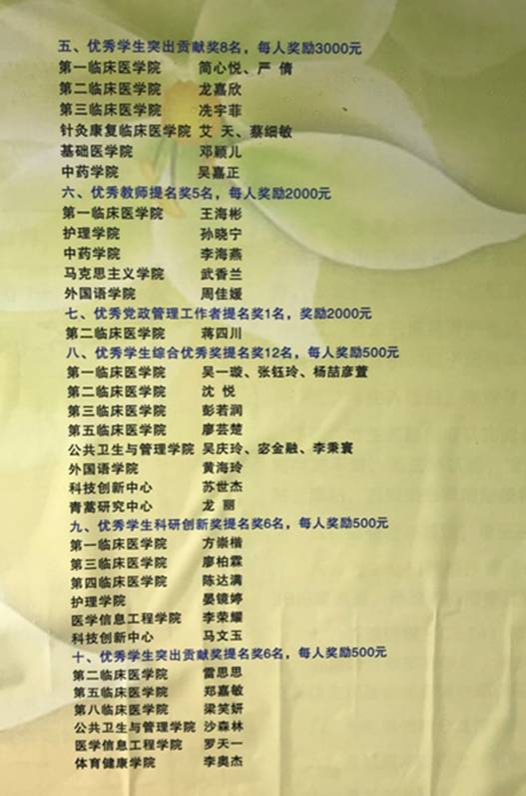 五、优秀学生突出贡献奖8名，每人奖励3000元
第一临床医学院 简心悦、严 倩
第二临床医学院 龙嘉欣
第三临床医学院 冼宇菲
针灸康复临床医学院 艾 天、蔡细敏
基础医学院 邓颖儿
中药学院 吴嘉正
六、优秀教师提名奖5名，每人奖励2000元
第一临床医学院 王海彬
护理学院 孙晓宁
中药学院 李海燕
马克思主义学院 武香兰
外国语学院 周佳媛
七、优秀党政管理工作者提名奖1名，奖励2000元
第二临床医学院 蒋四川
八、优秀学生综合优秀奖提名奖12名，每人奖励500元
第一临床医学院 吴一璇、张钰玲、杨喆彦萱
第二临床医学院 沈 悦
第三临床医学院 彭若润
第五临床医学院 廖芸楚
公共卫生与管理学院 吴庆玲、宓金融、李秉寰
外国语学院 黄海玲
科技创新中心 苏世杰
青蒿研究中心 龙 丽
九、优秀学生科研创新奖提名奖6名，每人奖励500元
第一临床医学院 方崇楷
第三临床医学院 廖柏霖
第四临床医学院 陈达满
护理学院 晏镜婷
医学信息工程学院 李荣耀
科技创新中心 马文玉
十、优秀学生突出贡献奖提名奖6名，每人奖励500元
第二临床医学院 雷思思
第五临床医学院 郑嘉敏
第八临床医学院 梁笑妍
公共卫生与管理学院 沙森林
医学信息工程学院 罗天一
体育健康学院 李奥杰